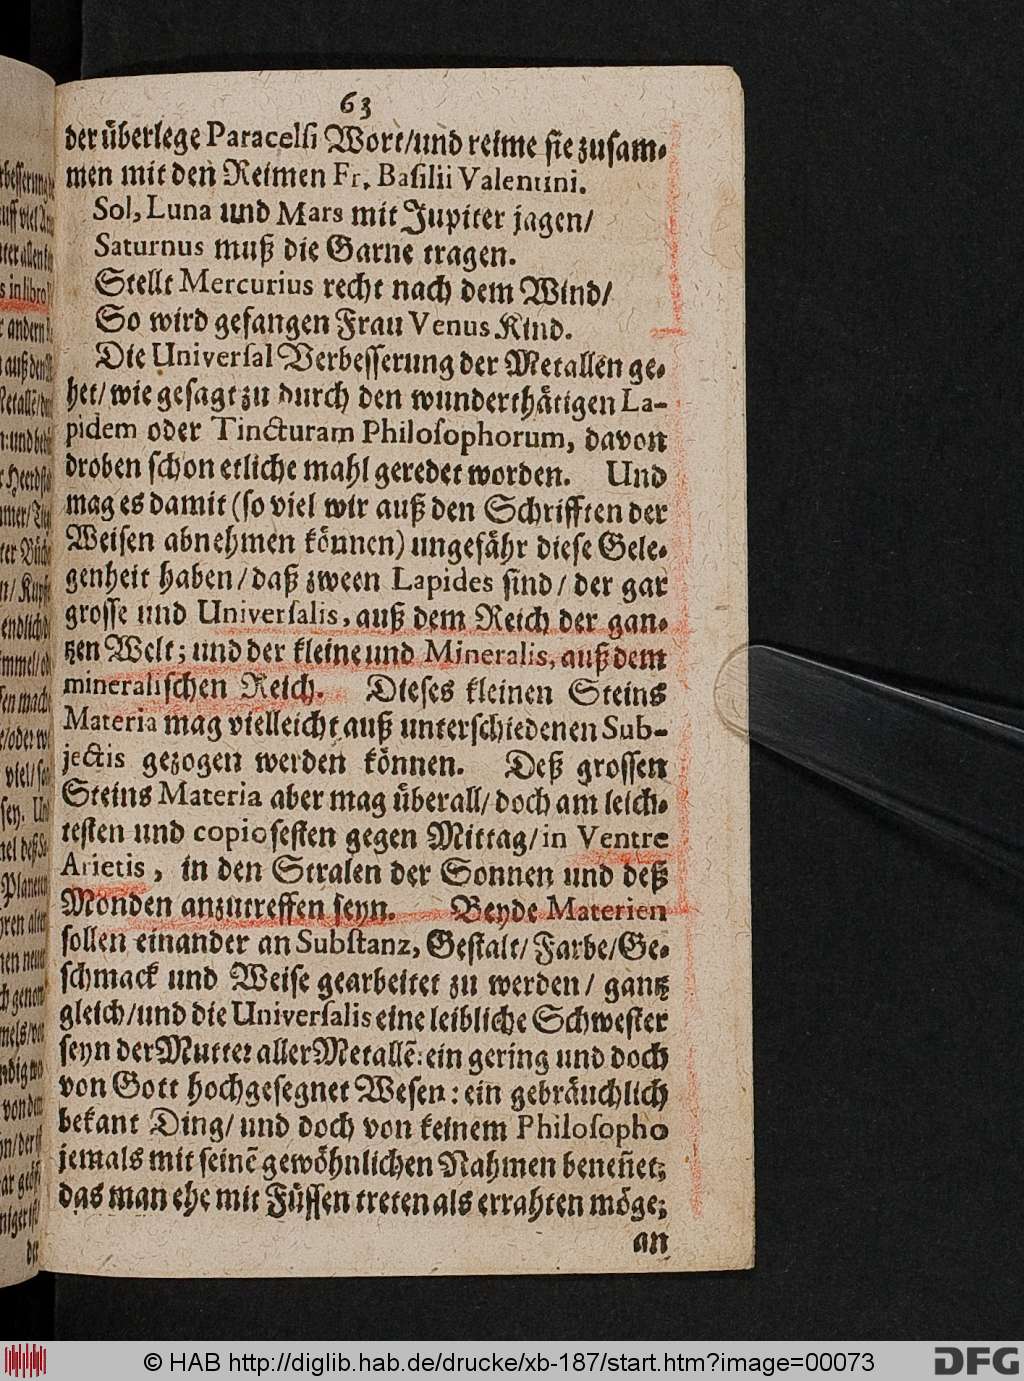 63
der überlege Paracelſi Wort/und reime ſie zuſam-
men mit den Reimen Fr. Baſilii Valentini.
Sol, Luna und Mars mit Jupiter jagen/
Saturnus muß die Garne tragen.
Stellt Mercurius recht nach dem Wind/
So wird gefangen Frau Venus Kind.
Die Univerſal Verbeſſerung der Metallen ge-
het/ wie geſagt zu durch den wunderthätigen La-
pidem oder Tincturam Philoſophorum, davon
droben ſchon etliche mahl geredet worden. Und
mag es damit (ſo viel wir auß den Schrifften der
Weiſen abnehmen können) ungefähr dieſe Gele-
genheit haben/ daß zween Lapides ſind/ der gar
groſſe und Univerſalis, auß dem Reich der gan-
tzen Welt; und der kleine und Mineralis, auß dem
mineraliſchen Reich. Dieſes kleinen Steins
Materia mag vielleicht auß unterſchiedenen Sub-
jectis gezogen werden können. Deß groſſen
Steins Materia aber mag überall/ doch am leich-
teſten und copioſeſten gegen Mittag/ in Ventre
Arietis, in den Stralen der Sonnen und deß
Monden anzutreffen ſeyn. Beyde Materien
ſollen einander an Subſtanz, Geſtalt/ Farbe/ Ge-
ſchmack und Weiſe gearbeitet zu werden/ gantz
gleich/und die Univerſalis eine leibliche Schweſter
ſeyn der Mutter aller Metallē: ein gering und doch
von Gott hochgeſegnet Weſen: ein gebräuchlich
bekant Ding/ und doch von keinem Philoſopho
jemals mit ſeinē gewöhnlichen Nahmen beneñet;
das man ehe mit Füſſen treten als errahten möge;
an
© HAB http://diglib.hab.de/drucke/xb-187/start.htm?image=00073
DFG